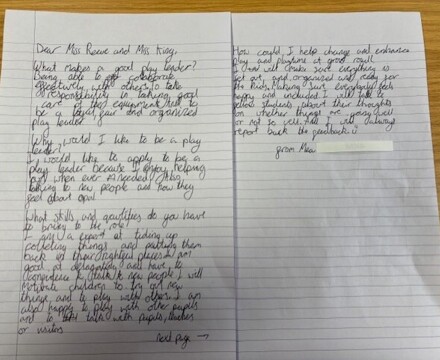 Dear Miss Reeve and Miss King,
What makes a good play leader?
Being able to collaborate
effectively with others to take
responsibility in taking good
care of the equipment. Had to
be a loyal, fair and organized
play leader
Why would I like to be a play
leader?
I would like to apply to be a
play leader because I enjoy helping
out when ever is needed. I also
talking to new people and how they
feel about opal
What skills and qualities do you have
to bring to the role?
I am a expert at tidying up
collecting things and putting them
back in their rightful places. I am
good at delegating and have to
talk to new people. I will
motivate children to try out new
things and to play with others. I am
also happy to play with other pupils
and to talk with pupils, teachers
or visitors.
next page →
How could I help change and enhance
play and playtime at
I will make sure everything is
set out and organised well ready for
the kids. Making sure everybody feels
happy and included. I will talk to
fellow students about their thoughts
on whether things are going well
or not so well. I will always
report back the feedback.
from